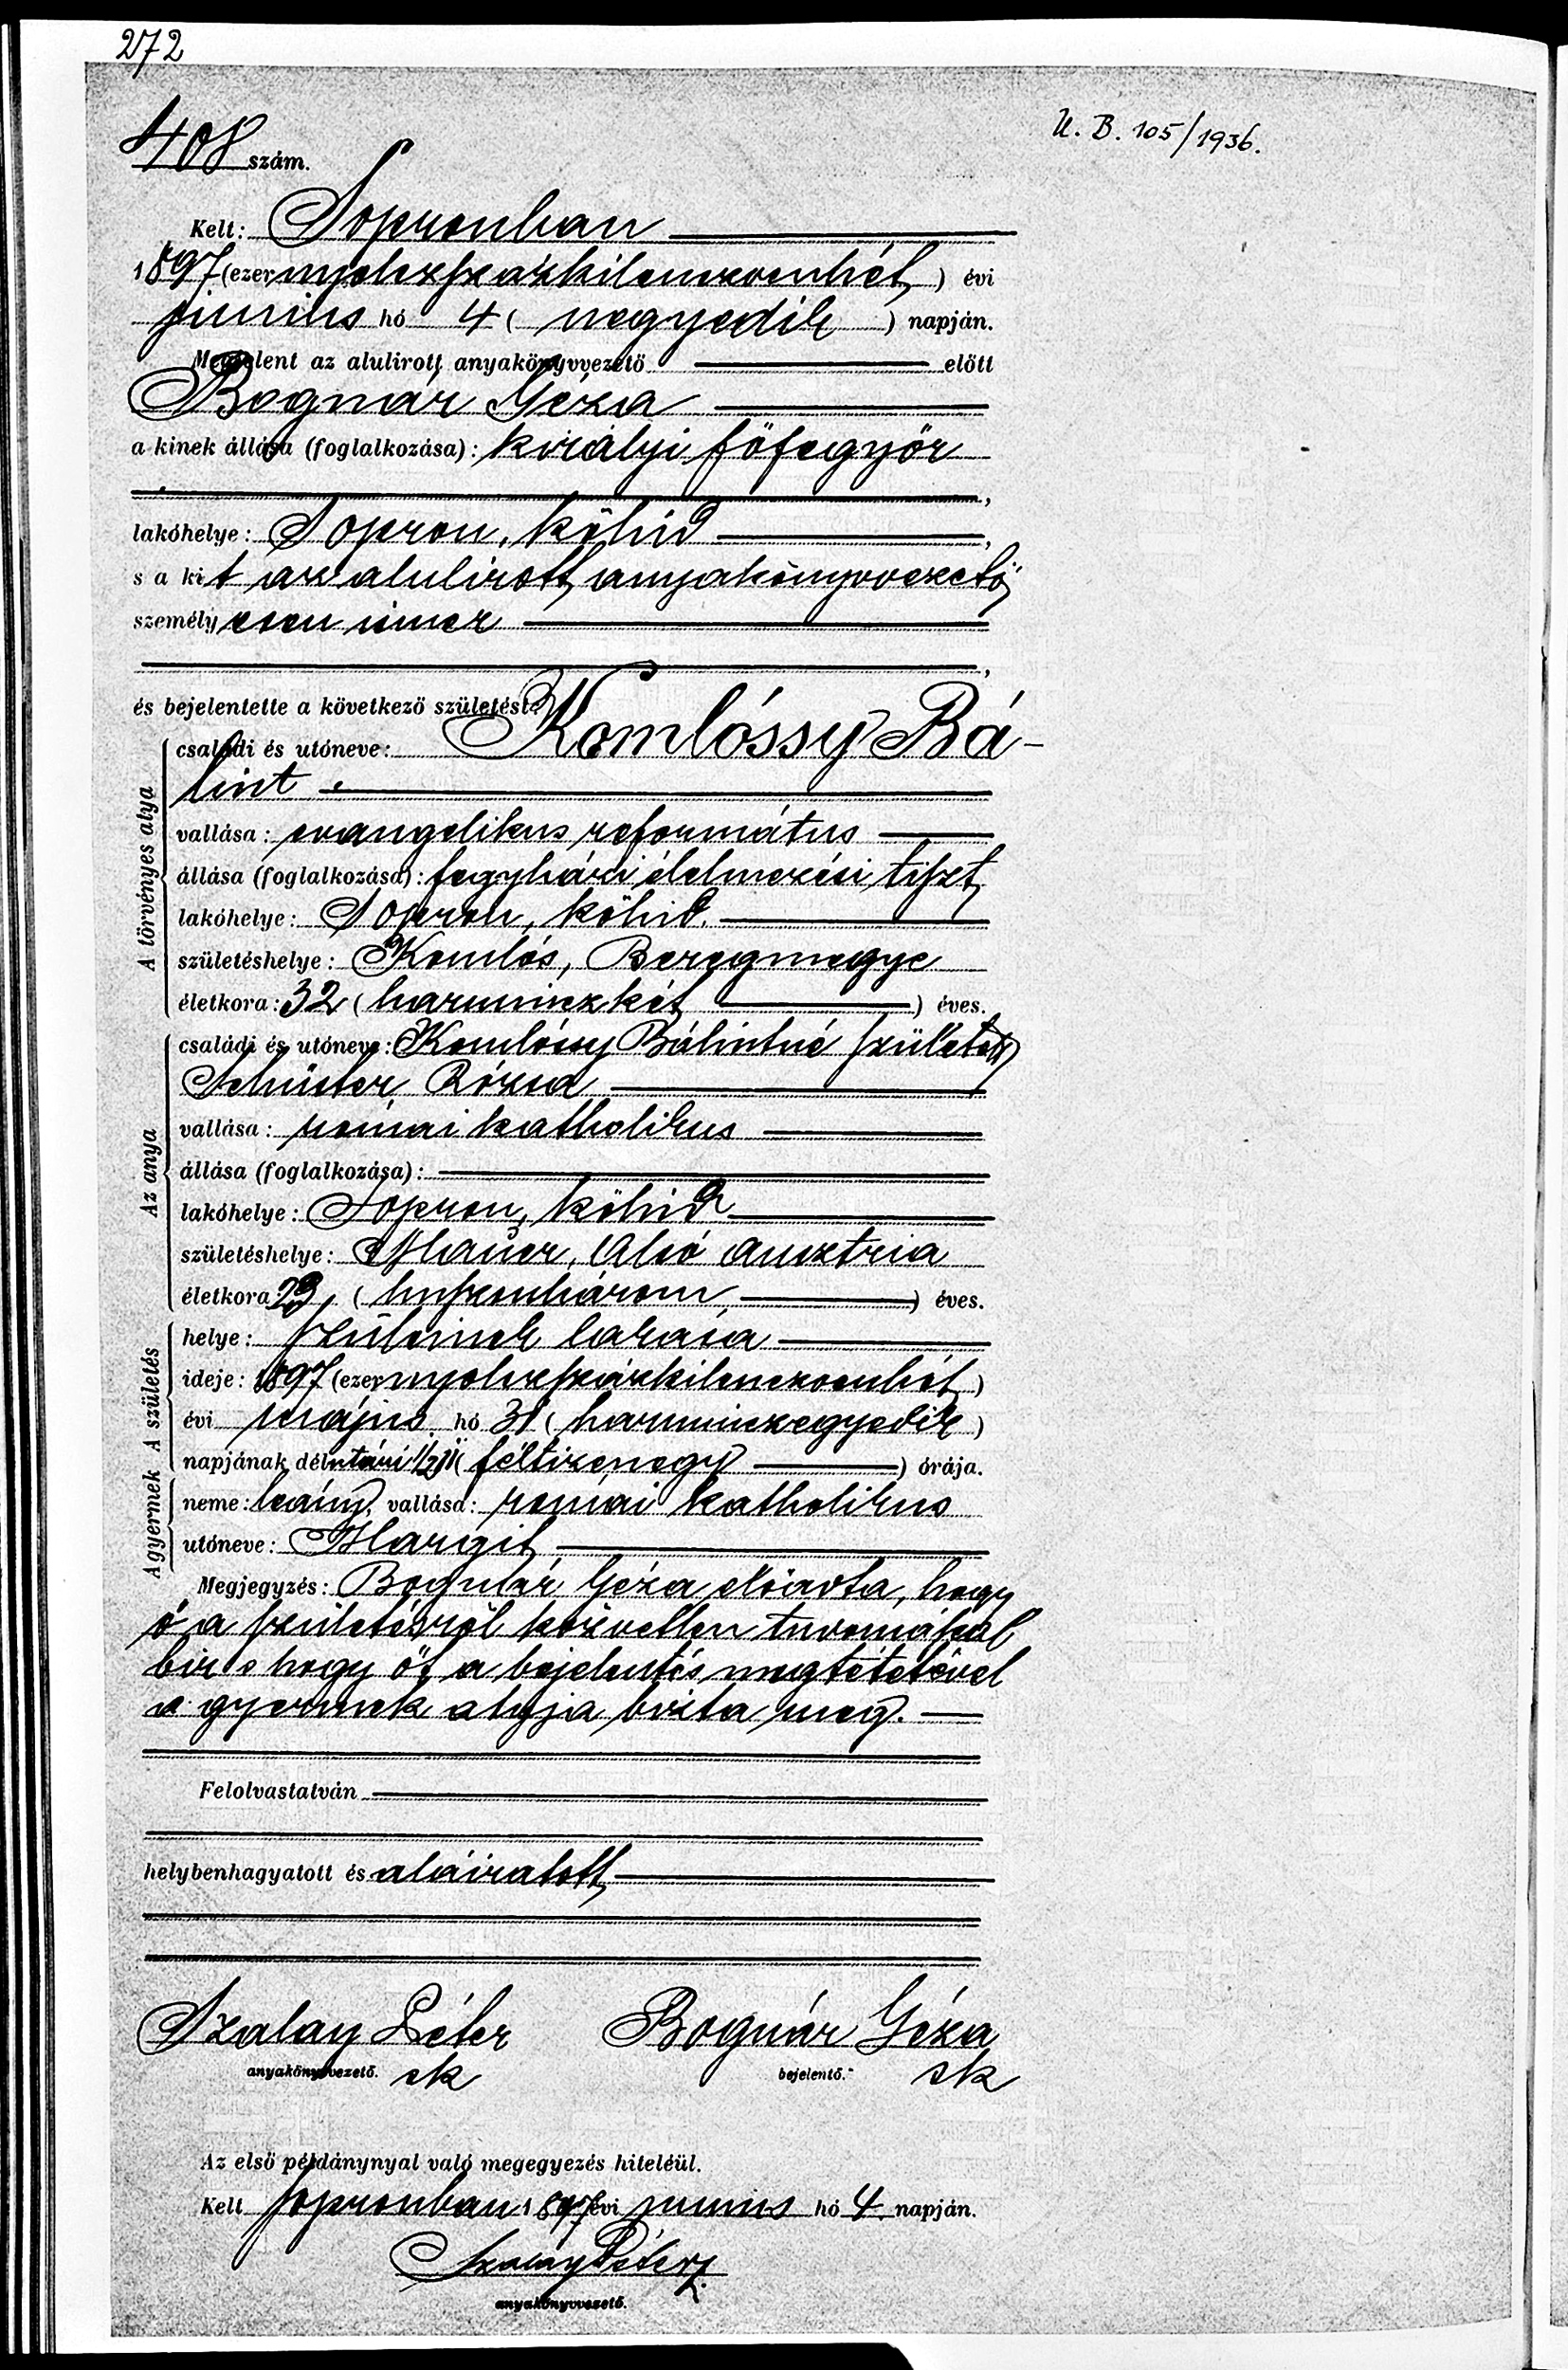 272
408 szám.
U. B. 105/1936.
Kelt: Sopronban
1897 (ezer nyolczszázkilenczvenhét) évi
junius hó 4 (negyedik) napján.
Megjelent az alulirott anyakönyvvezető előtt
Bognár Géza
a kinek állása (foglalkozása): királyi főfegyőr
lakóhelye: Sopron, kőhid,
s a kit az alulirott anyakönyvvezető
személyesen ismer
és bejelentette a következő születést:
A törvényes atya
családi és utóneve: Komlóssy Bá-
lint
vallása: evangelikus református
állása (foglalkozása): fegyházi élelmezési tiszt
lakóhelye: Sopron, kőhid.
születéshelye: Komlós, Beregmegye
életkora: 32 (harminczkét) éves.
Az anya
családi és utóneve: Komlóssy Bálintné született
Schuster Rózsa
vallása: római katholikus
állása (foglalkozása):
lakóhelye: Sopron, kőhid
születéshelye: Mauer, Alsó Ausztria
életkora 23, (huszonhárom) éves.
A születés
helye: szüleinek lakása
ideje: 1897 (ezer nyolczszázkilenczvenhét)
évi május hó 31 (harminczegyedik)
napjának délutáni 1/2 11 (féltizenegy) órája.
A gyermek
neme: leány, vallása: római katholikus
utóneve: Margit
Megjegyzés: Bognár Géza előadta, hogy
ő a születésről közvetlen tudomással
bir s hogy őt a bejelentés megtételével
a gyermek atyja bizta meg.
Felolvastatván
helybenhagyatott és aláiratott
Szalay Péter Bognár Géza
anyakönyvvezető. sk bejelentő. sk
Az első példánynyal való megegyezés hiteléül.
Kelt Sopronban 1897 évi junius hó 4 napján.
Szalay Péter
anyakönyvvezető.